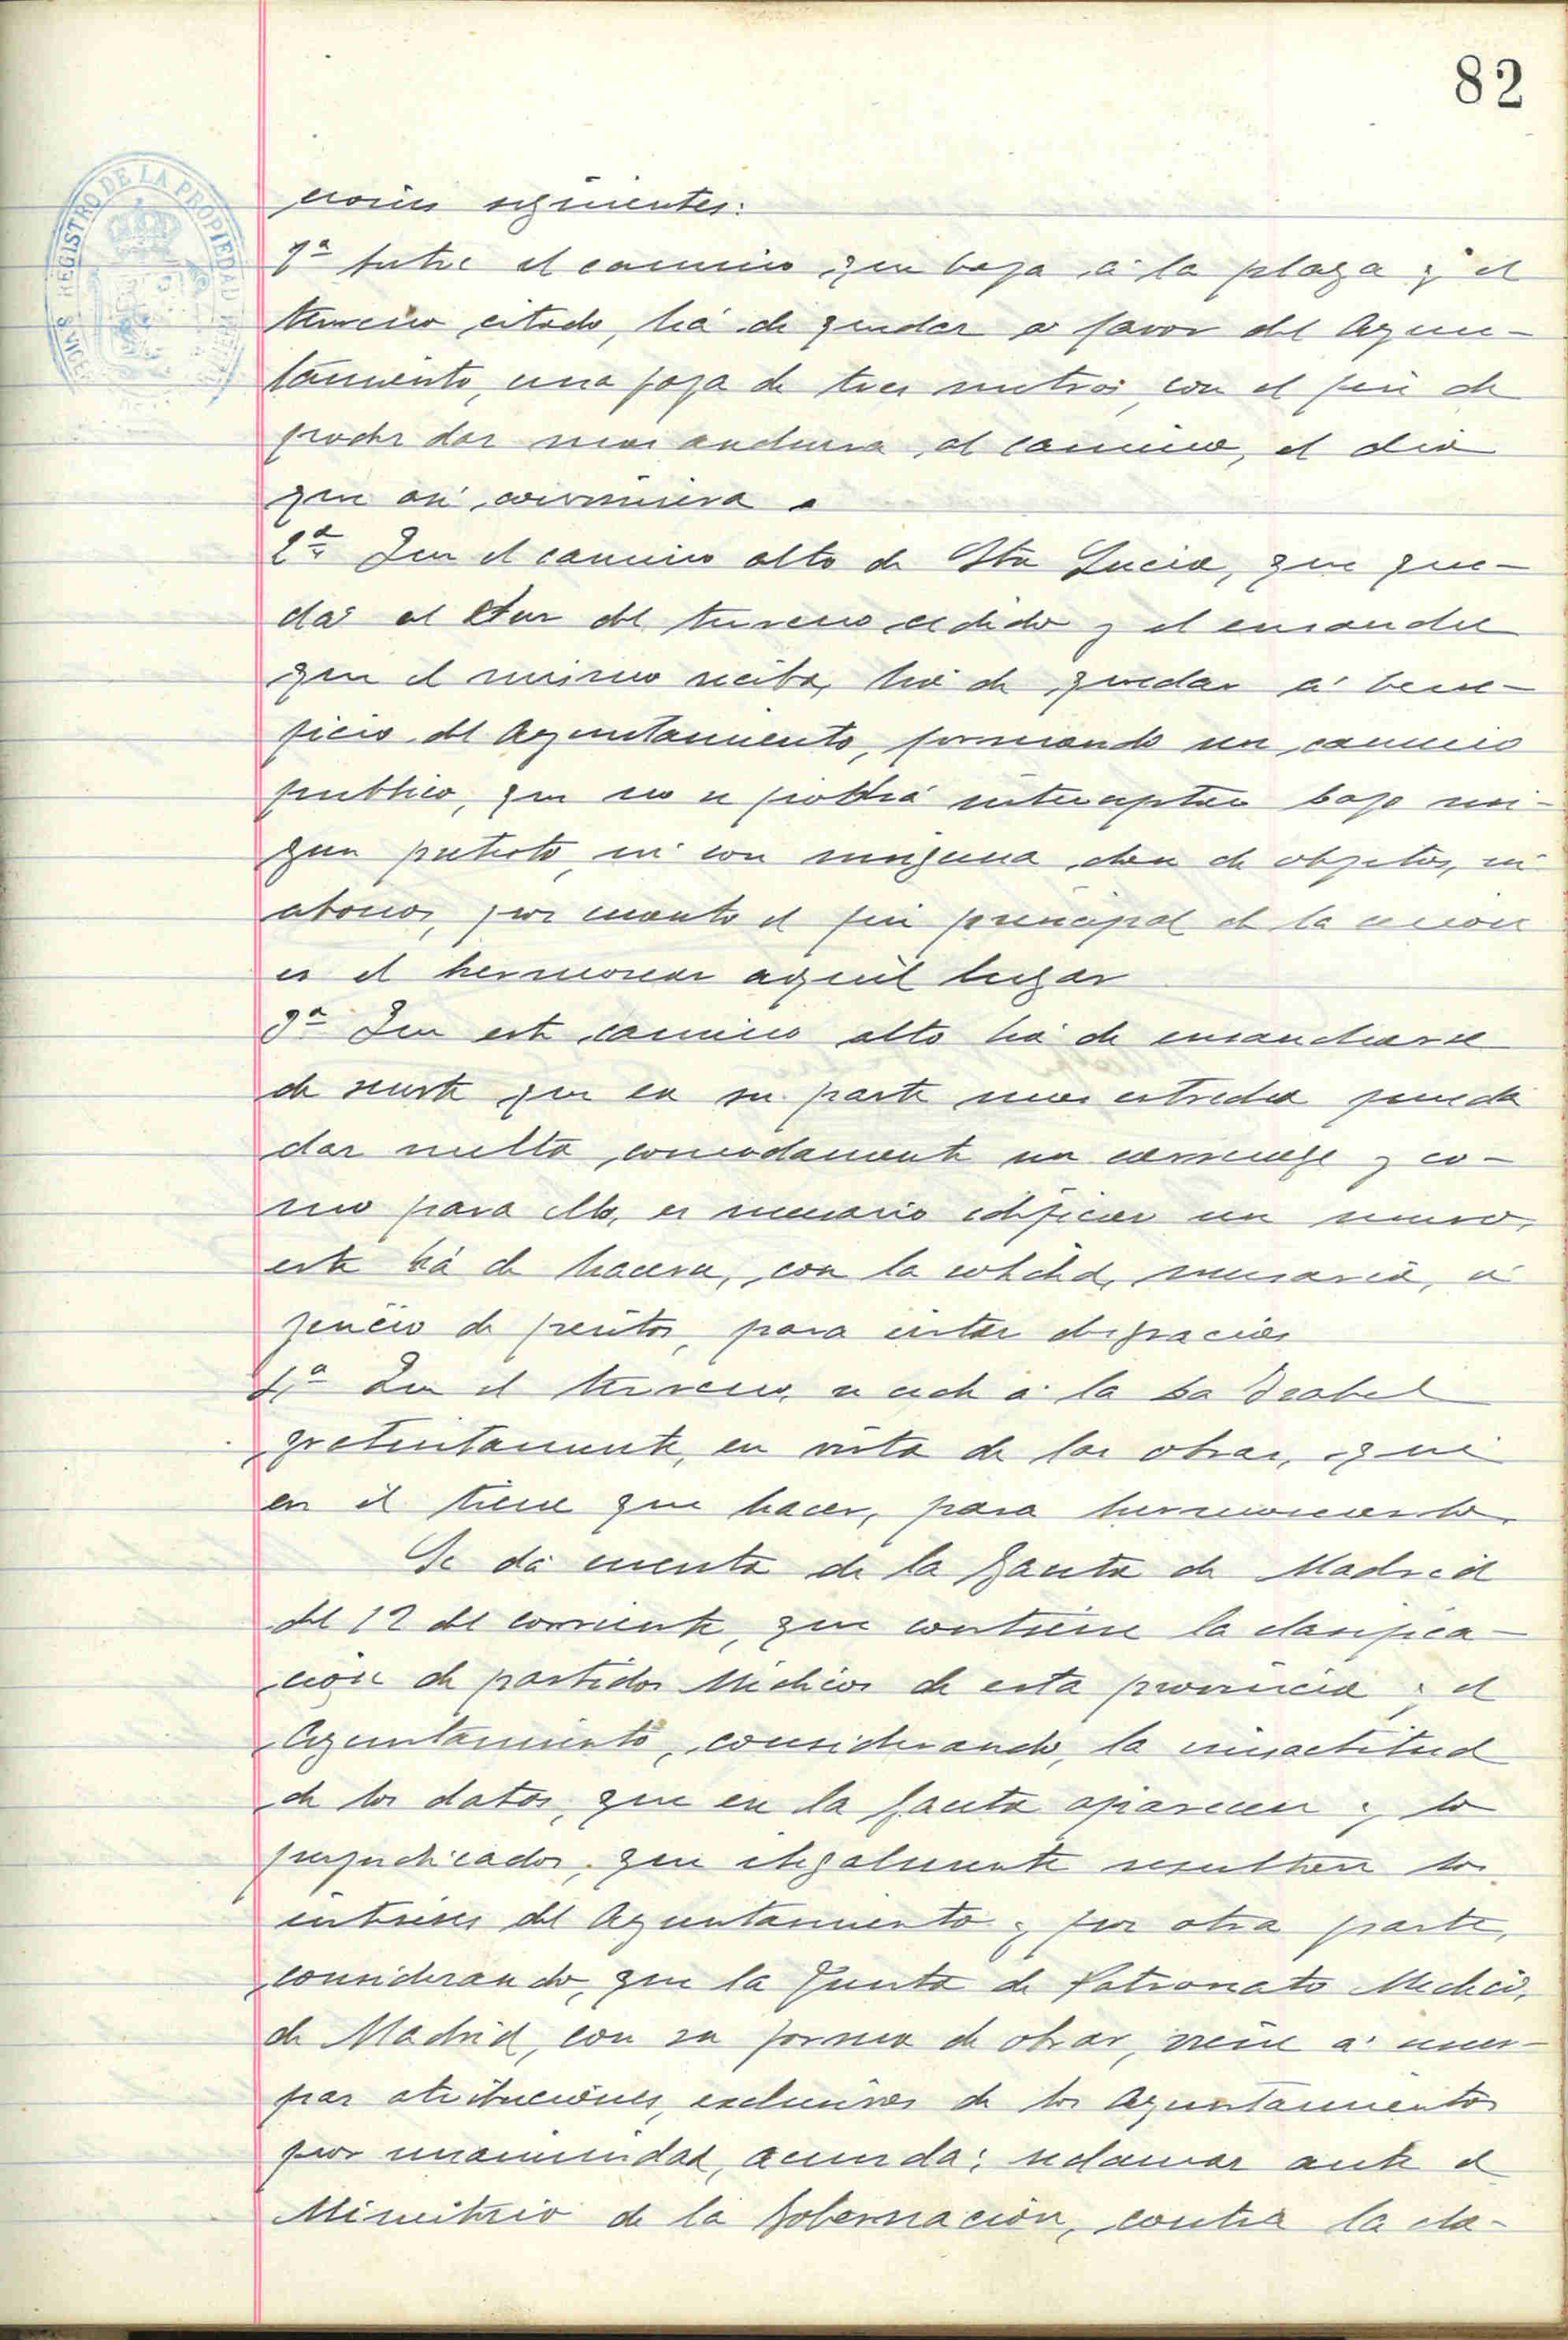 82
REGISTRO DE LA PROPIEDAD
ciones siguientes:
1ª Entre el camino que baja á la playa y el
terreno citado, há de quedar a favor del Ayun-
tamiento, una faja de tres metros, con el fin de
poder dar mas anchura al camino, el dia
que asi conviniera.
2ª Que el camino alto de Sta Lucia, que que-
da al Sur del terreno cedido y el ensanche
que el mismo reciba, há de quedar á bene-
ficio del Ayuntamiento, formando un camino
publico, que no se podrá interceptar bajo nin-
gun pretesto, ni con ninguna clase de objetos, ni
abonos, por cuanto el fin principal de la cesion
es el hermosear aquél lugar
3ª Que este camino alto há de ensancharse
de suerte que en su parte mas estrecha pueda
dar vuelta comodamente un carruaje y co-
mo para ello, es necesario edificar un muro,
este há de hacerse, con la solidéz necesaria, á
juicio de peritos, para evitar desgracias
4ª Que el terreno, se cede á la Sa Isabel
gratuitamente, en vista de las obras, que
en él tiene que hacer, para hermosearlo.
Se dá cuenta de la Gaceta de Madrid
del 12 del corriente, que contiene la clasifica-
ción de partidos Médicos de esta provincia y el
Ayuntamiento, considerando, la inexactitud
de los datos, que en la Gaceta aparecen y lo
perjudicados, que ilegalmente resultan los
intereses del Ayuntamiento y por otra parte,
considerando, que la Junta de Patronato Medico,
de Madrid, con su forma de obrar, viene á usur-
par atribuciones, exclusivas de los Ayuntamientos
por unanimidad, acuerda: reclamar ante el
Ministerio de la Gobernación, contra la cla-